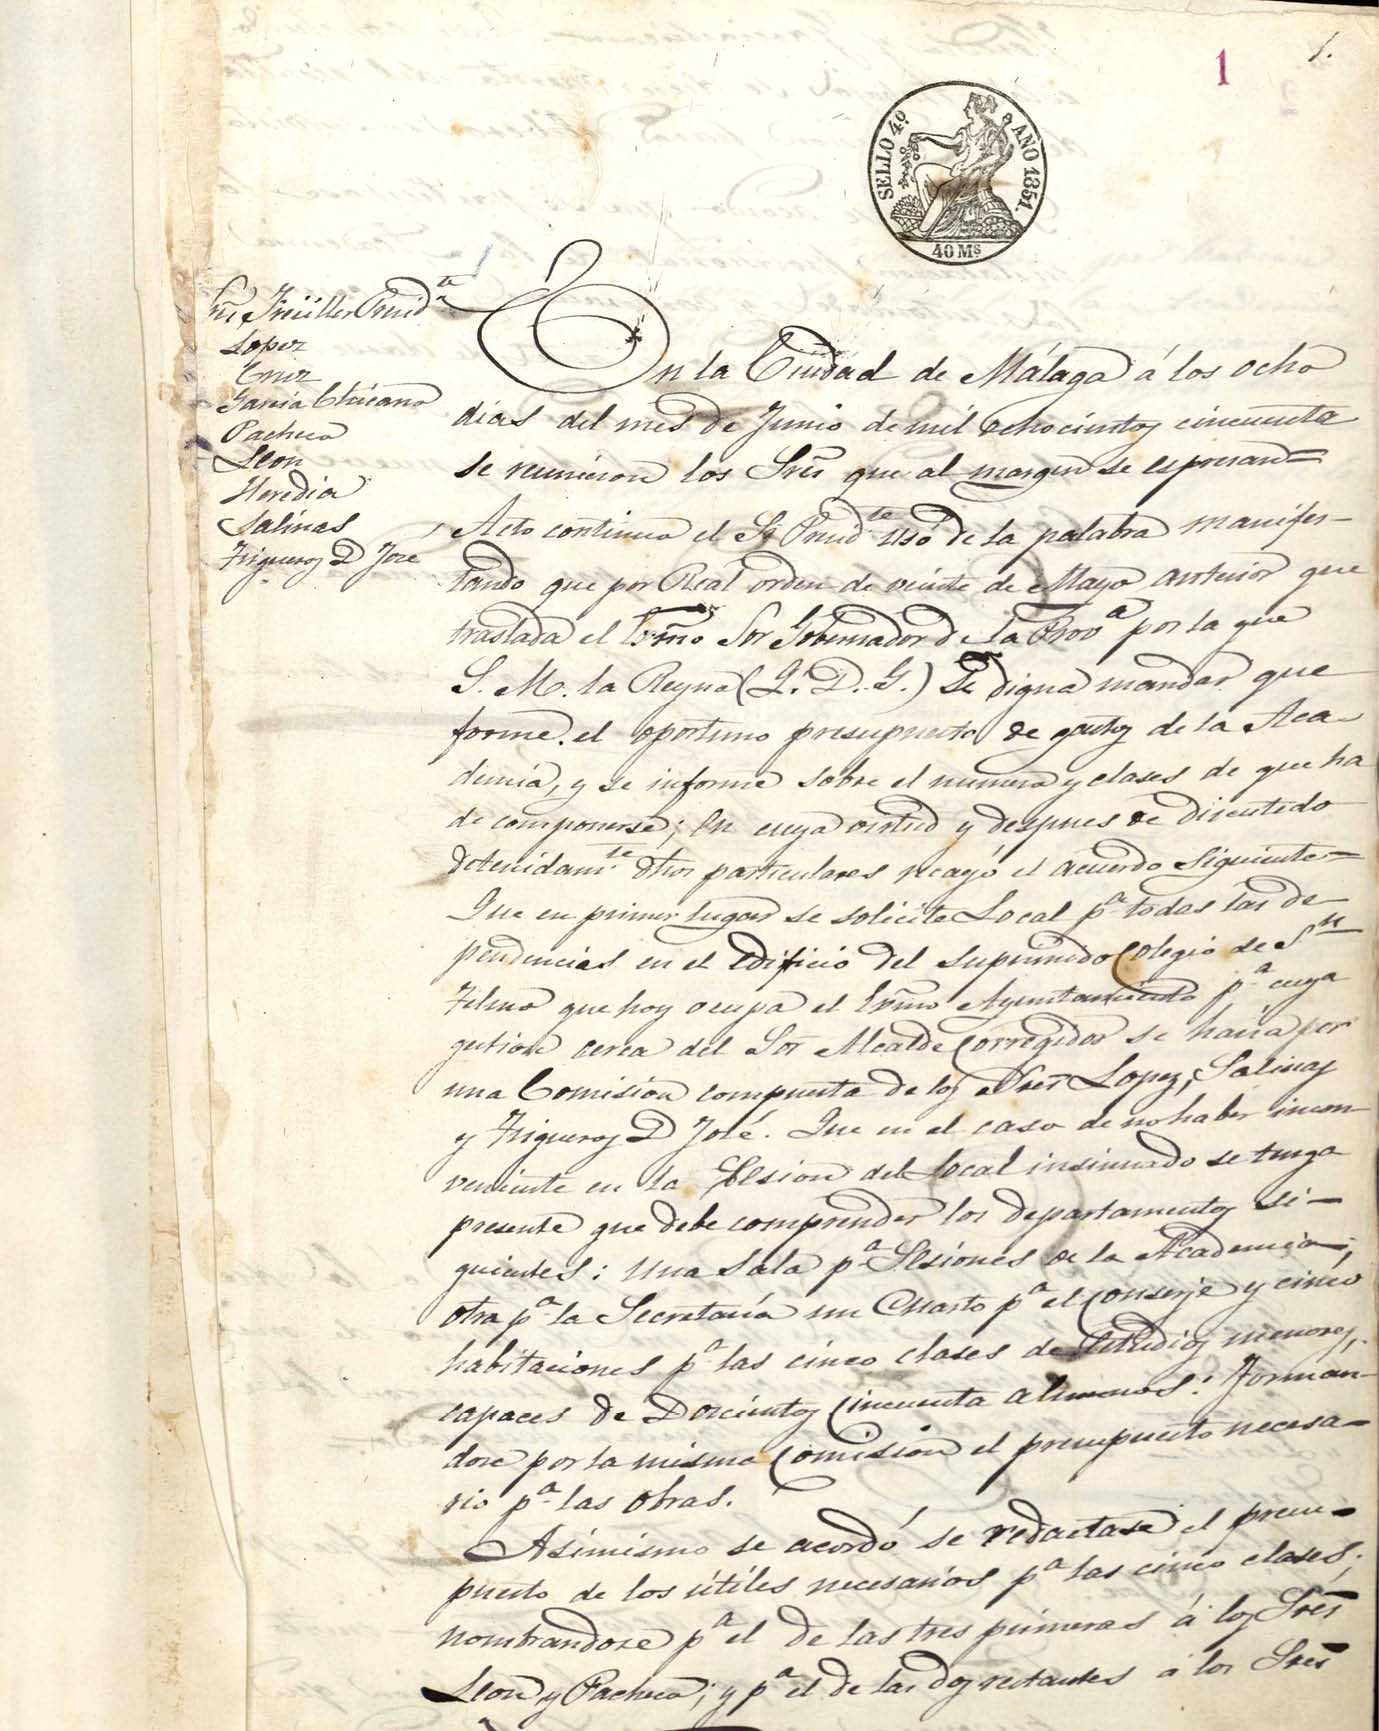 1
1.
SELLO 4º. AÑO 1851.
40 Ms
Sres Trüiller Presidte
Lopez
Cruz
Garcia Chicano
Pacheco
Leon
Heredia
Salinas
Trigueros D José
En la Ciudad de Málaga á los ocho
dias del mes de Junio de mil ochocientos cincuenta
se reunieron los Sres que al margen se espresan=
Acto continuo el Sr Presidte usó de la palabra manifes-
tando que por Real orden de veinte de Mayo anterior que
traslada el Exmo Sor Gobernador de la Prova por la que
S. M. la Reyna (Q. D. G.) se digna mandar que
forme el oportuno presupuesto de gastos de la Aca-
demia, y se informe sobre el numero y clases de que ha
de componerse; En cuya virtud y despues de discutido
detenidamte dhos particulares recayó el acuerdo siguiente=
Que en primer lugar se solicite Local pa todas las de-
pendencias en el edificio del suprimido Colegio de Sn
Telmo que hoy ocupa el Exmo Ayuntamiento pa cuya
gestion cerca del Sor Alcalde Corregidor se haria por
una Comision compuesta de los Sres Lopez, Salinas
y Trigueros D José. Que en el caso de no haber incon-
veniente en la sesion del Local insinuado se tenga
presente que debe comprender los departamentos si-
guientes: una Sala pa Sesiones de la Academia;
otra pa la Secretaría un Cuarto pa el Conserje y cinco
habitaciones pa las cinco clases de Estudios menores,
capaces de Doscientos Cincuenta alumnos: Forman-
dose por la misma Comision el presupuesto necesa-
rio pa las obras.
Asimismo se acordó se redactase el presu-
puesto de los útiles necesarios pa las cinco clases;
nombrandose pa el de las tres primeras á los Sres
Leon y Pacheco; y pa el de las dos restantes á los Sres